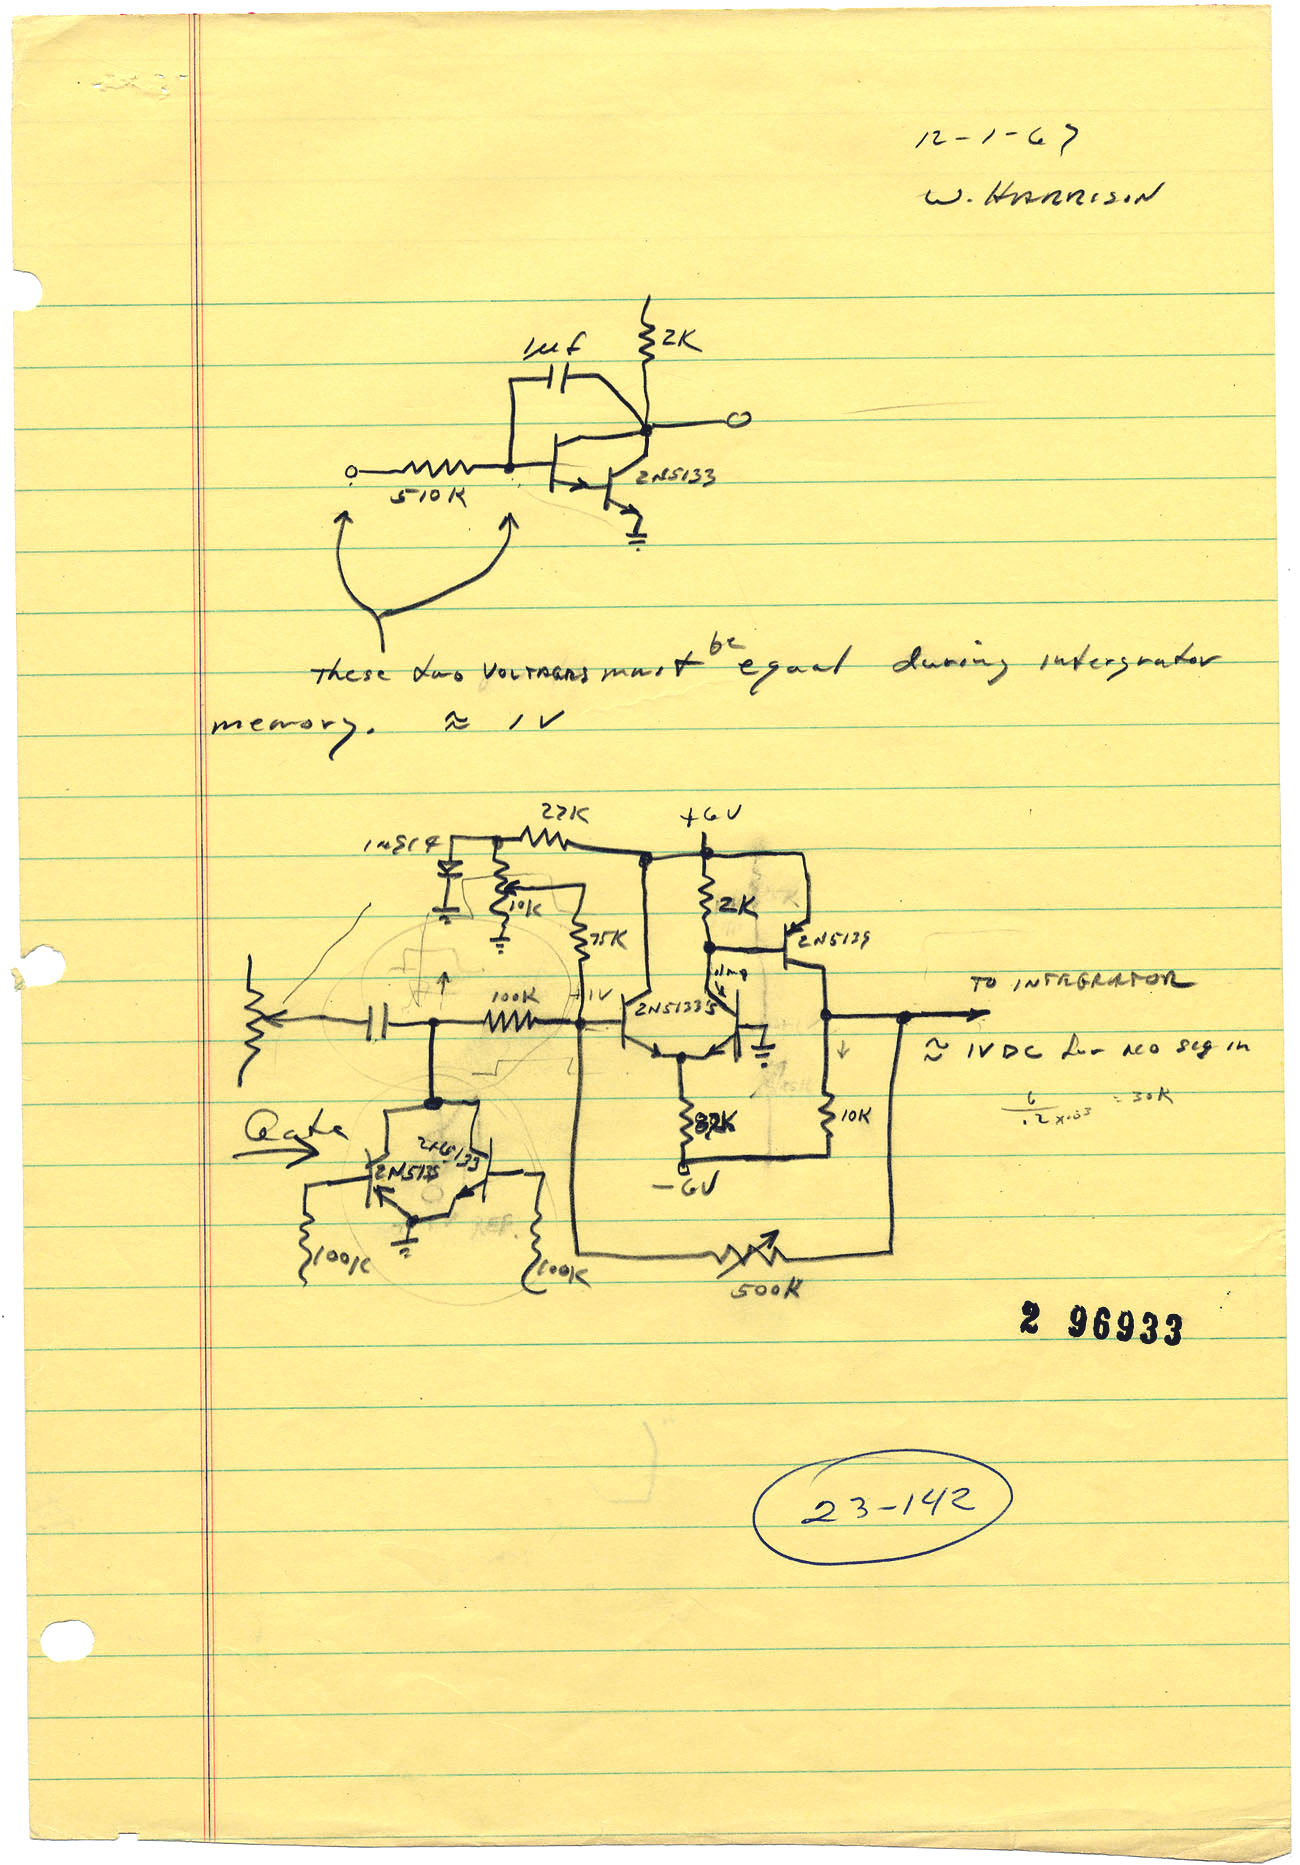 12-1-67
W. HARRISON
1uf
2K
510K
2N5133
These two VOLTAGES must be equal during intergrator
memory. ≈ 1V
27K
+6V
1N914
10K
2K
75K
2N5139
100K
+1V
2N5133's
TO INTEGRATOR
≈ 1VDC for no sig in
6
.2 x .03 = 30K
Gate
2N5133
2N5135
10K
-6V
100K
100K
500K
2 96933
23-142